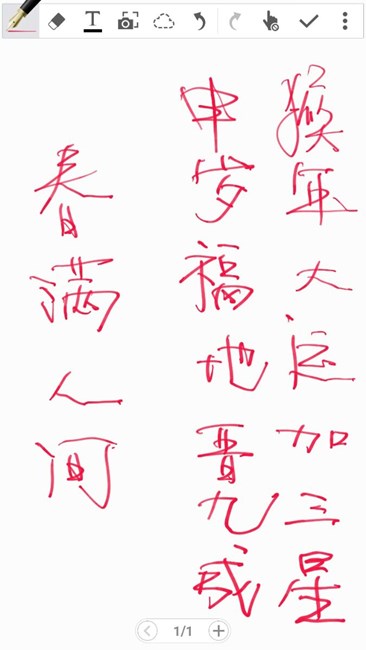 T
猴年大运加三星
申岁福地晋九成
春满人间
1/1